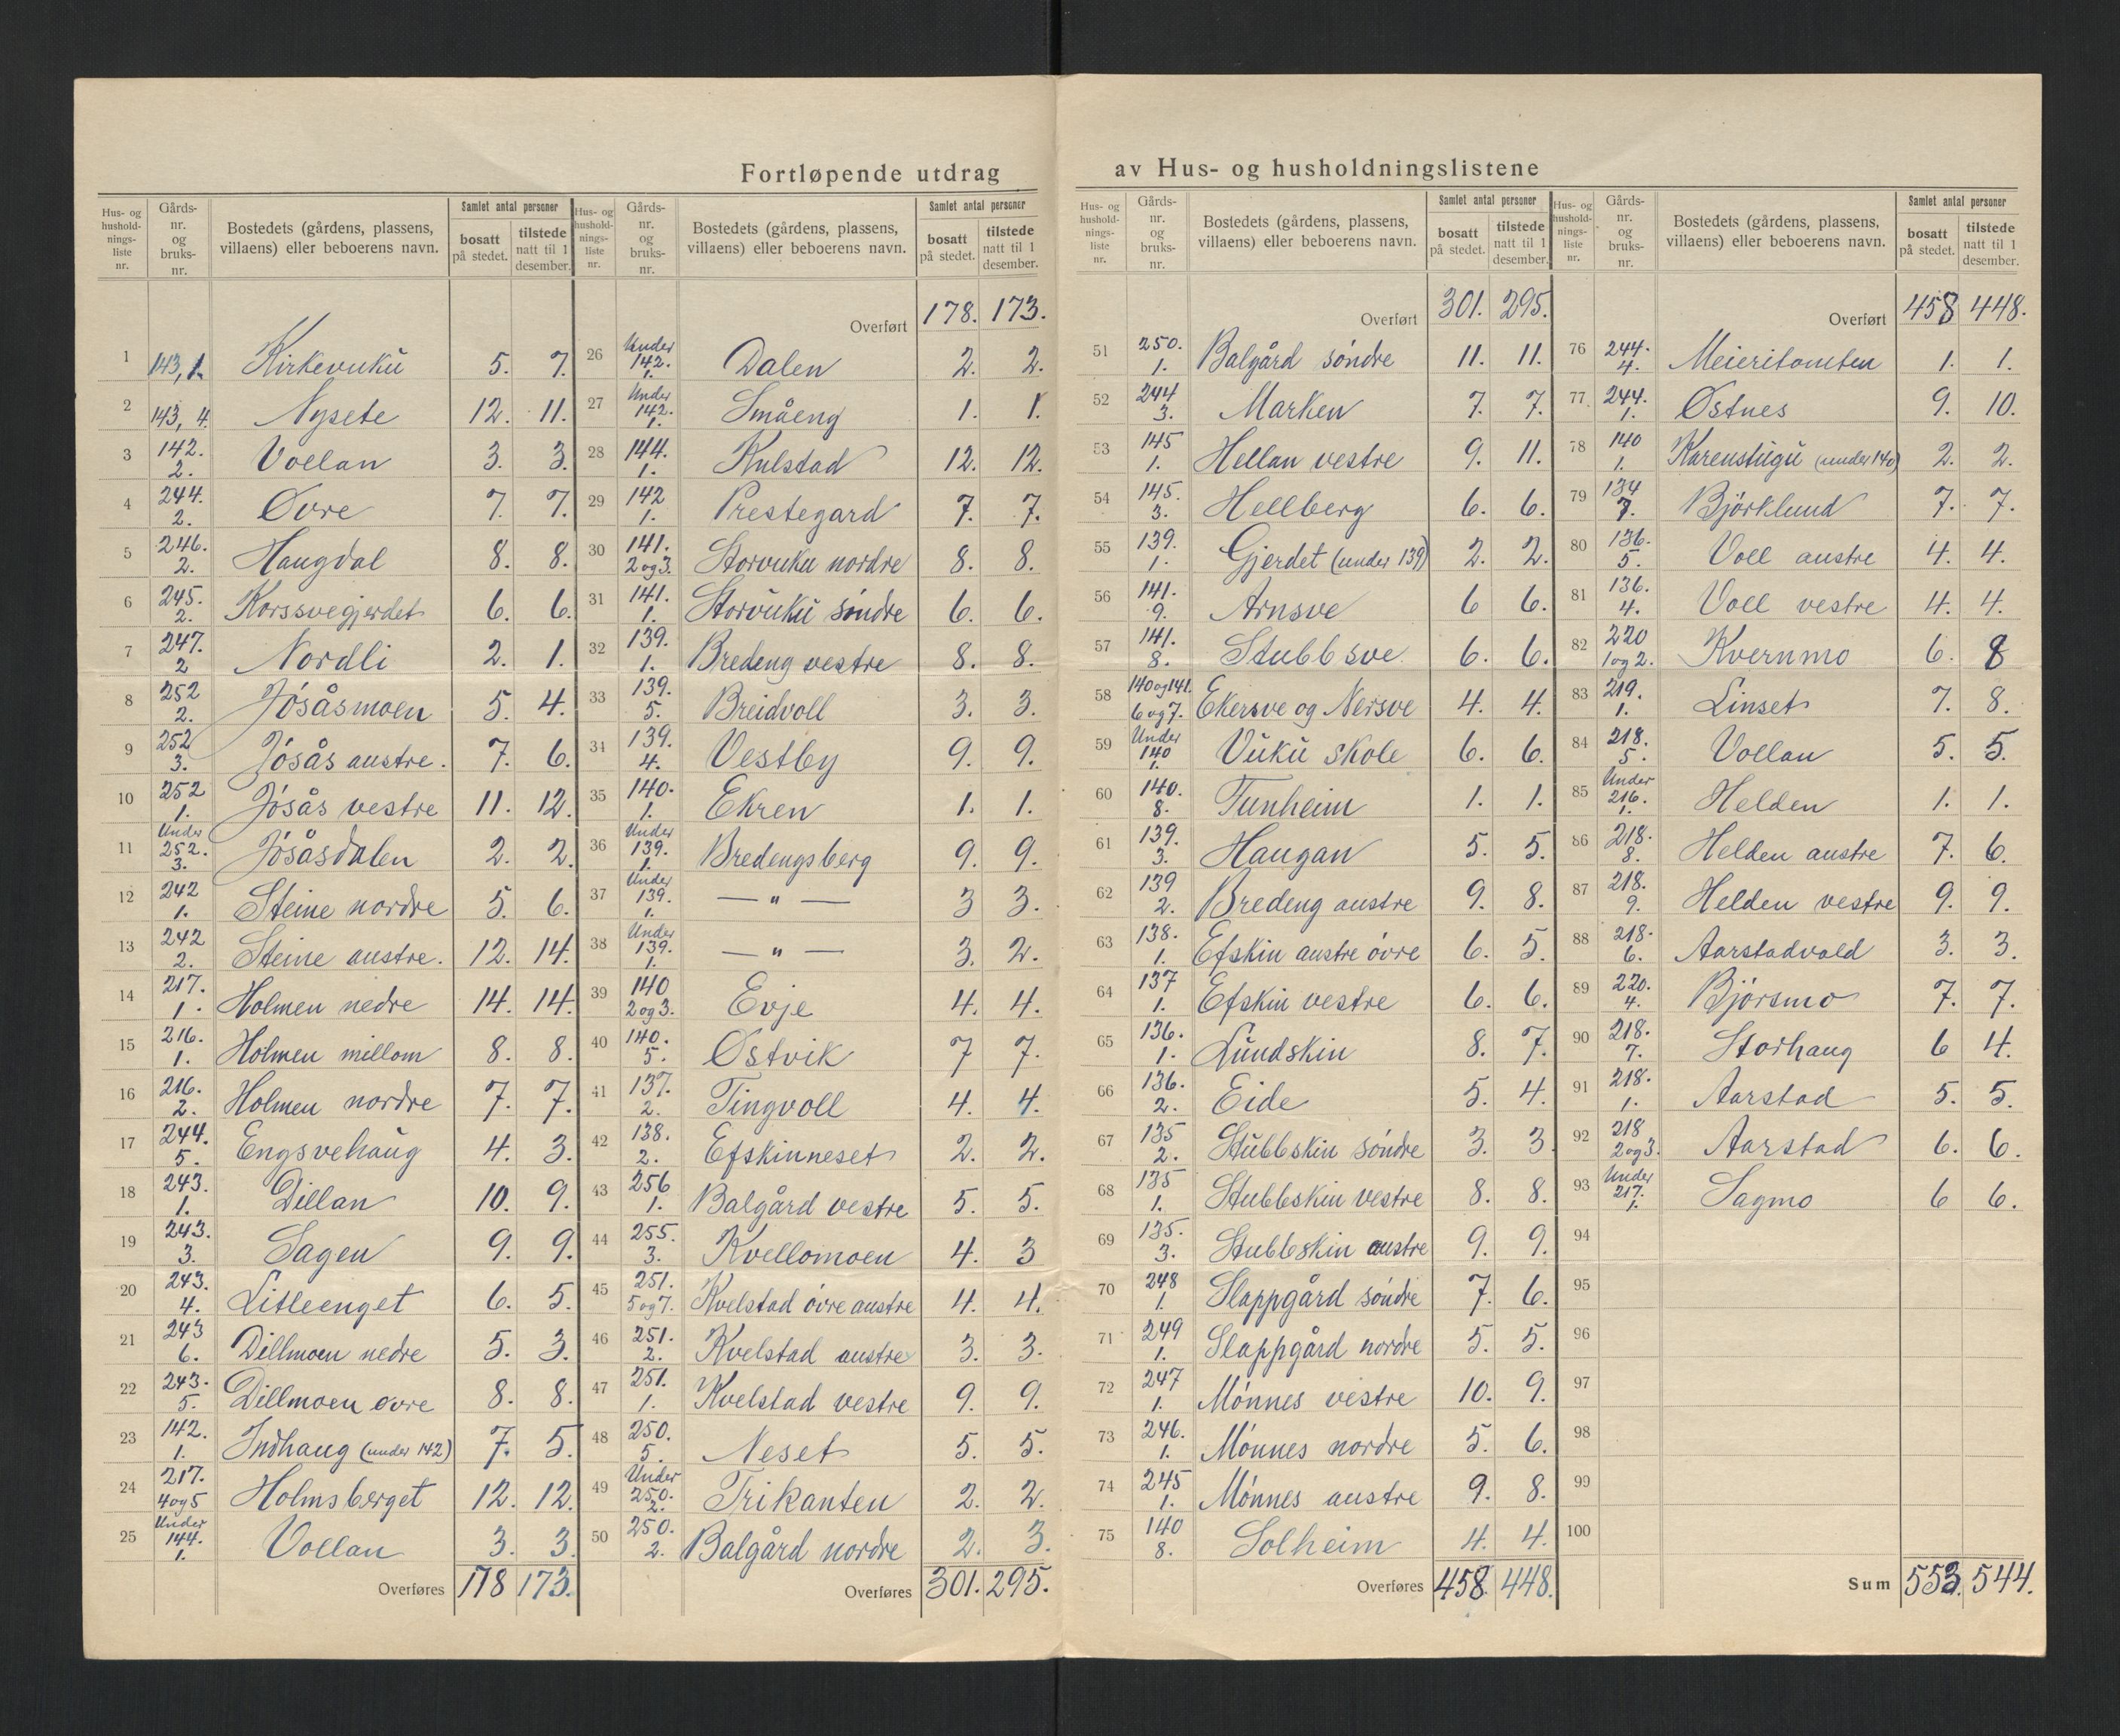 Fortløpende utdrag av Hus- og husholdningslistene
Hus- og hushold-nings-liste nr. | Gårds-nr. og bruks-nr. | Bostedets (gårdens, plassens, villaens) eller beboerens navn. | Samlet antal personer | bosatt på stedet. | tilstede natt til 1 desember.
1 143,1. Kirkevuku 5. 7.
2 143,4. Nysete 12. 11.
3 142. 2. Vollan 3. 3.
4 244. 2. Øvre 7. 7.
5 246. 2. Haugdal 8. 8.
6 245. 2. Korssvegjerdet 6. 6.
7 247. 2 Nordli 2. 1.
8 252 2. Jósåsmoen 5. 4.
9 252 3. Jósås austre. 7. 6.
10 252 1. Jósås vestre 11. 12.
11 Under 252. 3. Jósåsdalen 2. 2.
12 242 1. Steine nordre 5. 6.
13 242 2. Steine austre. 12. 14.
14 217. 1. Holmen nedre 14. 14.
15 216. 1. Holmen millom 8. 8.
16 216. 2. Holmen nordre 7. 7.
17 244. 5. Engsvehaug 4. 3.
18 243. 1. Dillan 10. 9.
19 243. 3. Sagen 9. 9.
20 243. 4. Litleenget 6. 5.
21 243 6. Dillmoen nedre 5. 3.
22 243. 5. Dillmoen øvre 8. 8.
23 142. 1. Indhaug (under 142) 7. 5.
24 217. 4og5 Holmsberget 12. 12.
25 Under 144. 1. Vollan 3. 3.
Overføres 178 173.
Hus- og hushold-nings-liste nr. | Gårds-nr. og bruks-nr. | Bostedets (gårdens, plassens, villaens) eller beboerens navn. | Samlet antal personer | bosatt på stedet. | tilstede natt til 1 desember.
Overført 178. 173.
26 Under 142. 1. Dalen 2. 2.
27 Under 142. 1. Småeng 1. 1.
28 144. 1. Kulstad 12. 12.
29 142 1. Prestegard 7. 7.
30 141. 2og3. Storvuku nordre 8. 8.
31 141. 1. Storvuku sóndre 6. 6.
32 139. 1. Bredeng vestre 8. 8.
33 139. 5. Breidvoll 3. 3.
34 139. 4. Vestby 9. 9.
35 140. 1. Ekren 1. 1.
36 Under 139. 1. Bredengsberg 9. 9.
37 Under 139. 1. — " — 3 3.
38 Under 139. 1. — " — 3. 2.
39 140 2og3. Evje 4. 4.
40 140. 5. Østvik 7 7.
41 137. 2. Tingvoll 4. 4.
42 138. 2. Efskinneset 2. 2.
43 256 1. Balgård vestre 5. 5.
44 255. 3. Kvellomoen 4. 3
45 251. 5og7. Kvelstad óvre austre 4. 4.
46 251. 2. Kvelstad austre 3. 3.
47 251. 1. Kvelstad vestre 9. 9.
48 250. 5. Neset 5. 5.
49 Under 250. 2. Trikanten 2. 2.
50 250. 2. Balgård nordre 2. 3.
Overføres 301. 295.
Hus- og hushold-nings-liste nr. | Gårds-nr. og bruks-nr. | Bostedets (gårdens, plassens, villaens) eller beboerens navn. | Samlet antal personer | bosatt på stedet. | tilstede natt til 1 desember.
Overført 301. 295.
51 250. 1. Balgård sóndre 11. 11.
52 244 3. Marken 7. 7.
53 145 1. Hellan vestre 9. 11.
54 145. 3. Hellberg 6. 6.
55 139. 1. Gjerdet (under 139) 2. 2.
56 141. 9. Arnsve 6 6.
57 141. 8. Stubbsve 6. 6.
58 140og141. 6og7. Ekersve og Nersve 4. 4.
59 Under 140 1. Vuku skole 6. 6.
60 140. 8. Tunheim 1. 1.
61 139. 3. Haugan 5. 5.
62 139 2. Bredeng austre 9. 8.
63 138. 1. Efskin austre óvre 6. 5.
64 137 1. Efskin vestre 6. 6.
65 136. 1. Lundskin 8. 7.
66 136. 2. Eide 5. 4.
67 135 2. Stubbskin sóndre 3. 3
68 135 1. Stubbskin vestre 8. 8.
69 135. 3. Stubbskin austre 9. 9.
70 248 1. Slappgård sóndre 7. 6.
71 249 1. Slappgård nordre 5. 5.
72 247 1. Mónnes vestre 10. 9.
73 246. 1. Mónnes nordre 5. 6.
74 245 1. Mónnes austre 9. 8.
75 140 8. Solheim 4. 4.
Overføres 458. 448.
Hus- og hushold-nings-liste nr. | Gårds-nr. og bruks-nr. | Bostedets (gårdens, plassens, villaens) eller beboerens navn. | Samlet antal personer | bosatt på stedet. | tilstede natt til 1 desember.
Overført 458 448.
76 244. 4. Meieritomten 1. 1.
77 244. 1. Østnes 9. 10.
78 140 1. Karenstugu (under 140) 2. 2.
79 134 7. Bjórklund 7. 7.
80 136. 5. Voll austre 4. 4.
81 136. 4. Voll vestre 4. 4.
82 220 1og2. Kvernmo 6. 8
83 219. 1. Linset 7. 8.
84 218. 5. Vollan 5. 5.
85 Under 216. 1. Helden 1. 1.
86 218. 8. Helden austre 7. 6.
87 218. 9. Helden vestre 9. 9.
88 218. 6. Aarstadvald 3. 3.
89 220. 4. Bjórsmo 7. 7.
90 218. 7. Storhaug 6 4.
91 218. 1. Aarstad 5. 5.
92 218 2og3. Aarstad 6. 6.
93 Under 217. 1. Sagmo 6 6.
94
95
96
97
98
99
100
Sum 553. 544.